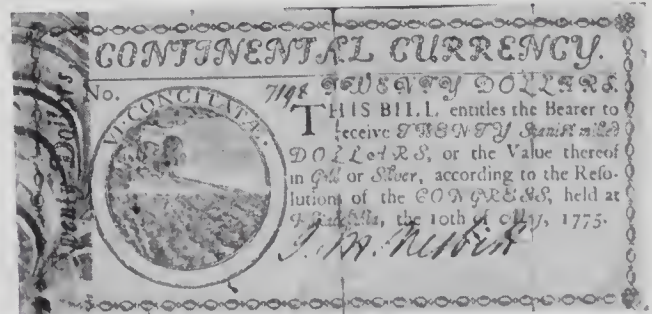 CONTINENTAL CURRENCY.
Twenty Dollars
No. 7198
VI CONCITATÆ.
TWENTY DOLLARS.
THIS BILL entitles the Bearer to
receive TWENTY Spanish milled
DOLLARS, or the Value thereof
in Gold or Silver, according to the Reso-
lutions of the CONGRESS, held at
Philadelphia, the 10th of May, 1775.
J. M. Nesbitt